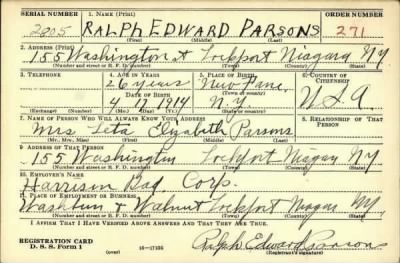 SERIAL NUMBER 1. NAME (Print) ORDER NUMBER
2805 RALPH EDWARD PARSONS 271
(First) (Middle) (Last)
2. ADDRESS (Print)
155 Washington st Lockport Niagara NY
(Number and street or R. F. D. number) (Town) (County) (State)
3. TELEPHONE 4. AGE IN YEARS 5. PLACE OF BIRTH 6. COUNTRY OF CITIZENSHIP
26 years New Fane
DATE OF BIRTH (Town or county)
4 17 1914 N.Y. U.S.A
(Exchange) (Number) (Mo.) (Day) (Yr.) (State or country)
7. NAME OF PERSON WHO WILL ALWAYS KNOW YOUR ADDRESS 8. RELATIONSHIP OF THAT PERSON
Mrs Leta Elizabeth Parsons
(Mr., Mrs., Miss) (First) (Middle) (Last)
9. ADDRESS OF THAT PERSON
155 Washington Lockport Niagara NY
(Number and street or R. F. D. number) (Town) (County) (State)
10. EMPLOYER'S NAME
Harrison Rad Corp.
11. PLACE OF EMPLOYMENT OR BUSINESS
Washburn & Walnut Lockport Niagara NY
(Number and street or R. F. D. number) (Town) (County) (State)
I AFFIRM THAT I HAVE VERIFIED ABOVE ANSWERS AND THAT THEY ARE TRUE.
REGISTRATION CARD
D. S. S. Form 1 16—17105 Ralph Edward Parsons
(Registrant's signature)